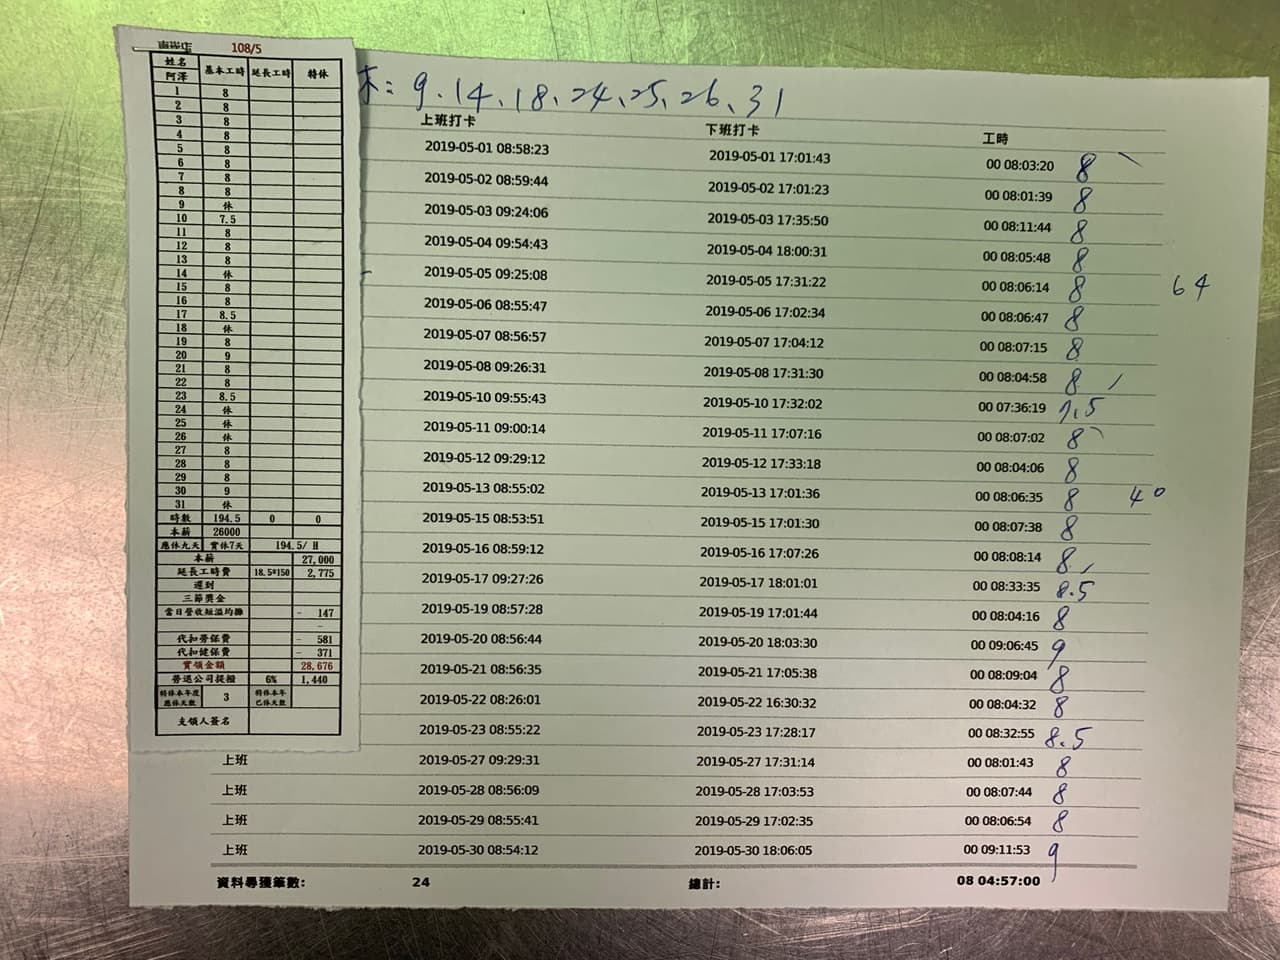 108/5
姓名 基本工時 延長工時 特休
阿澤
1 8
2 8
3 8
4 8
5 8
6 8
7 8
8 8
9 休
10 7.5
11 8
12 8
13 8
14 休
15 8
16 8
17 8.5
18 休
19 8
20 9
21 8
22 8
23 8.5
24 休
25 休
26 休
27 8
28 8
29 8
30 9
31 休
時數 194.5 0 0
本薪 26000
應休九天 實休7天 194.5/ H
本薪 27,000
延長工時費 18.5*150 2,775
遲到
三節獎金
當日營收短溢均攤 - 147
-
代扣勞保費 - 581
代扣健保費 - 371
實領金額 28,676
勞退公司提撥 6% 1,440
特休本年度應休天數 3 特休本年已休天數
支領人簽名
休: 9、14、18、24、25、26、31
上班打卡 下班打卡 工時
2019-05-01 08:58:23 2019-05-01 17:01:43 00 08:03:20 8
2019-05-02 08:59:44 2019-05-02 17:01:23 00 08:01:39 8
2019-05-03 09:24:06 2019-05-03 17:35:50 00 08:11:44 8
2019-05-04 09:54:43 2019-05-04 18:00:31 00 08:05:48 8
2019-05-05 09:25:08 2019-05-05 17:31:22 00 08:06:14 8 64
2019-05-06 08:55:47 2019-05-06 17:02:34 00 08:06:47 8
2019-05-07 08:56:57 2019-05-07 17:04:12 00 08:07:15 8
2019-05-08 09:26:31 2019-05-08 17:31:30 00 08:04:58 8
2019-05-10 09:55:43 2019-05-10 17:32:02 00 07:36:19 7.5
2019-05-11 09:00:14 2019-05-11 17:07:16 00 08:07:02 8
2019-05-12 09:29:12 2019-05-12 17:33:18 00 08:04:06 8
2019-05-13 08:55:02 2019-05-13 17:01:36 00 08:06:35 8 40
2019-05-15 08:53:51 2019-05-15 17:01:30 00 08:07:38 8
2019-05-16 08:59:12 2019-05-16 17:07:26 00 08:08:14 8
2019-05-17 09:27:26 2019-05-17 18:01:01 00 08:33:35 8.5
2019-05-19 08:57:28 2019-05-19 17:01:44 00 08:04:16 8
2019-05-20 08:56:44 2019-05-20 18:03:30 00 09:06:45 9
2019-05-21 08:56:35 2019-05-21 17:05:38 00 08:09:04 8
2019-05-22 08:26:01 2019-05-22 16:30:32 00 08:04:32 8
2019-05-23 08:55:22 2019-05-23 17:28:17 00 08:32:55 8.5
上班 2019-05-27 09:29:31 2019-05-27 17:31:14 00 08:01:43 8
上班 2019-05-28 08:56:09 2019-05-28 17:03:53 00 08:07:44 8
上班 2019-05-29 08:55:41 2019-05-29 17:02:35 00 08:06:54 8
上班 2019-05-30 08:54:12 2019-05-30 18:06:05 00 09:11:53 9
資料尋獲筆數: 24 總計: 08 04:57:00